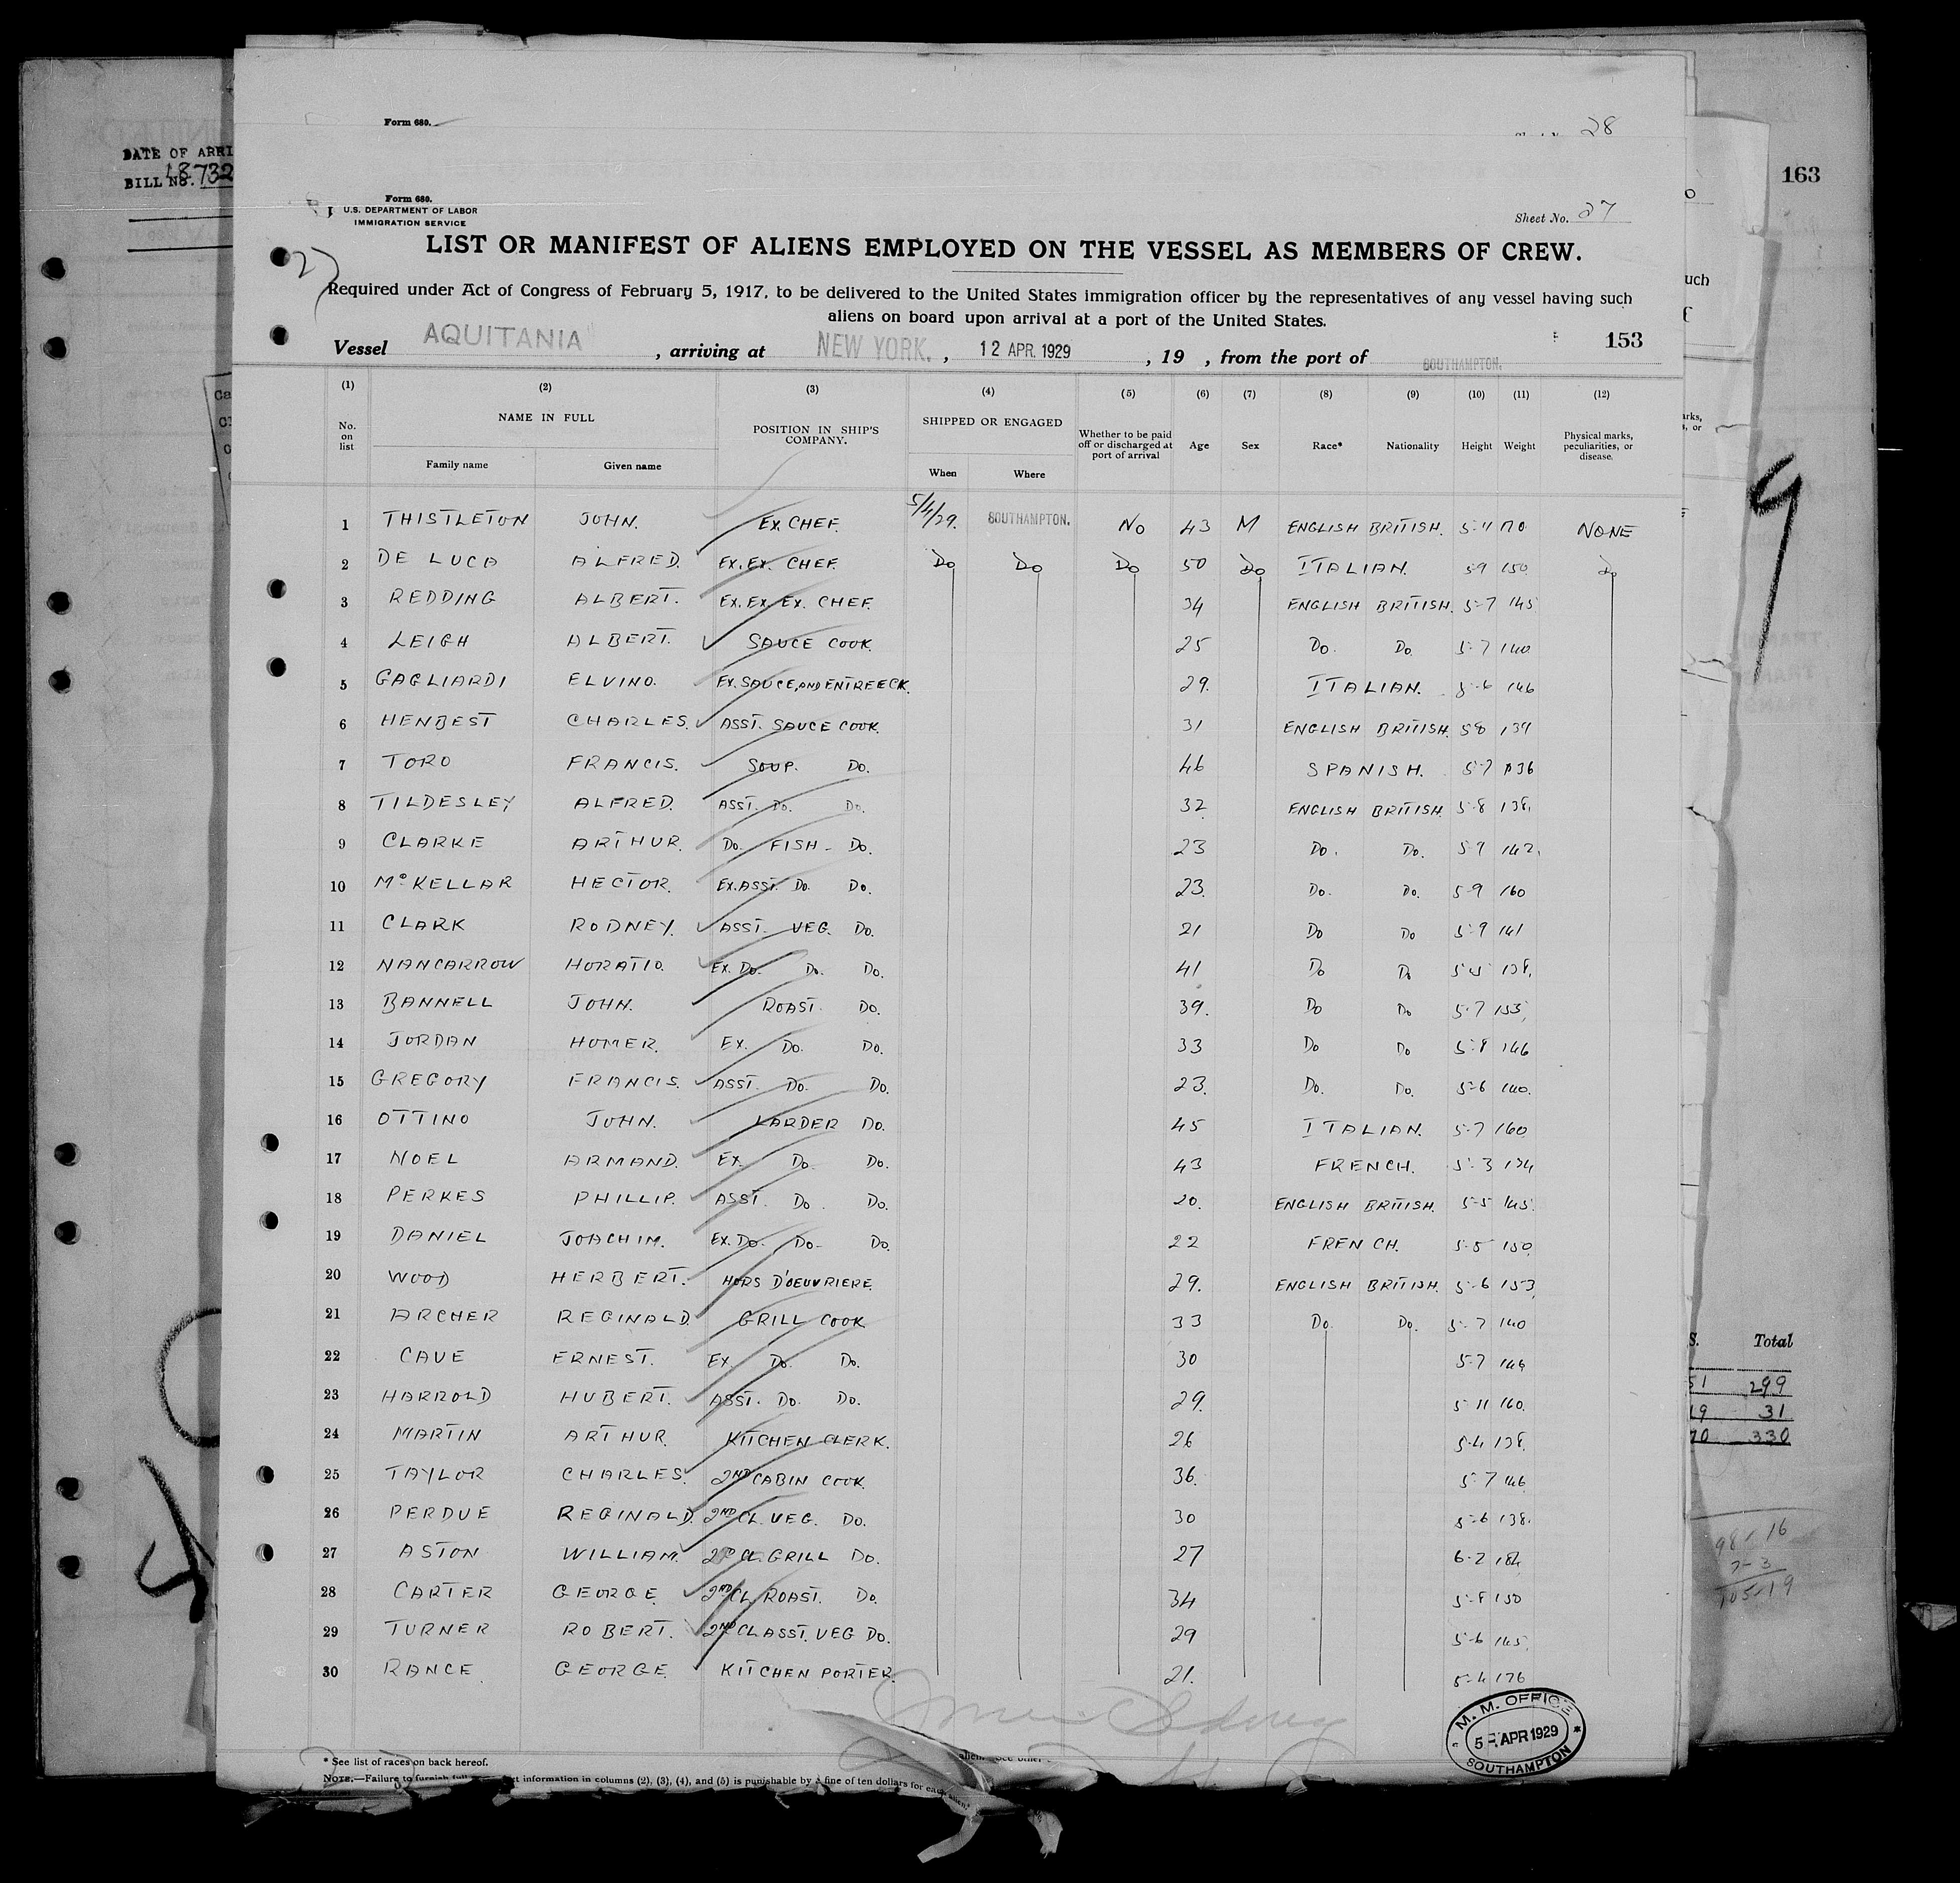 Form 680.
28
DATE OF ARRI
BILL NO. 18732
163
Form 680.
U.S. DEPARTMENT OF LABOR
IMMIGRATION SERVICE
Sheet No. 27
27
LIST OR MANIFEST OF ALIENS EMPLOYED ON THE VESSEL AS MEMBERS OF CREW.
Required under Act of Congress of February 5, 1917, to be delivered to the United States immigration officer by the representatives of any vessel having such
aliens on board upon arrival at a port of the United States.
153
Vessel AQUITANIA , arriving at NEW YORK. , 12 APR. 1929 , 19 , from the port of SOUTHAMPTON.
(1) (2) (3) (4) (5) (6) (7) (8) (9) (10) (11) (12)
No. on list NAME IN FULL POSITION IN SHIP'S COMPANY. SHIPPED OR ENGAGED Whether to be paid off or discharged at port of arrival Age Sex Race* Nationality Height Weight Physical marks, peculiarities, or disease.
Family name Given name When Where
1 THISTLETON JOHN. EX. CHEF. 5/4/29. SOUTHAMPTON. No 43 M ENGLISH BRITISH. 5-11 170 NONE
2 DE LUCA ALFRED. EX. EX. CHEF. Do Do Do 50 Do ITALIAN. 5-9 150 Do
3 REDDING ALBERT. EX. EX. EX. CHEF. 34 ENGLISH BRITISH. 5-7 145
4 LEIGH ALBERT. SAUCE COOK. 25 Do. Do. 5-7 140
5 GAGLIARDI ELVINO. EX. SAUCE AND ENTREE CK. 29. ITALIAN. 5-6 146
6 HENBEST CHARLES. ASST. SAUCE COOK. 31 ENGLISH BRITISH. 58 139
7 TORO FRANCIS. SOUP. Do. 46 SPANISH. 5-7 136
8 TILDESLEY ALFRED. ASST. Do. Do. 32 ENGLISH BRITISH. 5-8 138.
9 CLARKE ARTHUR. Do. FISH- Do. 23 Do. Do. 5-9 142.
10 McKELLAR HECTOR. EX. ASST. Do. Do. 23. Do. Do. 5-9 160
11 CLARK RODNEY. ASST. VEG. Do. 21 Do Do 5-9 141
12 NANCARROW HORATIO. EX. Do. Do. Do. 41 Do Do 5-5 138.
13 BANNELL JOHN. ROAST. Do. 39. Do Do 5-7 153
14 JORDAN HOMER. EX. Do. Do. 33 Do Do 5-8 146
15 GREGORY FRANCIS. ASST. Do. Do. 23. Do. Do. 5-6 140.
16 OTTINO JOHN. LARDER Do. 45 ITALIAN. 5-7 160
17 NOEL ARMAND. EX. Do. Do. 43 FRENCH. 5-3 134
18 PERKES PHILLIP. ASST. Do. Do. 20. ENGLISH BRITISH. 5-5 145.
19 DANIEL JOACHIM. EX. Do. Do- Do. 22 FRENCH. 5-5 150
20 WOOD HERBERT. HORS D'OEUVRIERE. 29. ENGLISH BRITISH. 5-6 153
21 ARCHER REGINALD. GRILL COOK 33 Do. Do. 5-7 140
22 CAVE ERNEST. EX. Do. Do. 30 5-7 144
23 HARROLD HUBERT. ASST. Do. Do. 29. 5-11 160.
24 MARTIN ARTHUR. KITCHEN CLERK. 26 5-4 138.
25 TAYLOR CHARLES. 2ND CABIN COOK. 36. 5-7 146
26 PERDUE REGINALD. 2ND CL. VEG. Do. 30 5-6 138.
27 ASTON WILLIAM. 2ND CL. GRILL Do. 27 6-2 184
28 CARTER GEORGE. 2ND CL. ROAST. Do. 34 5-8 150
29 TURNER ROBERT. 2ND CL ASST. VEG Do. 29 5-6 145.
30 RANCE GEORGE. KITCHEN PORTER. 21. 5-4 176
S. Total
51 299
19 31
70 330
98-16
7-3
105-19
M. M. OFFICE
5-APR 1929
SOUTHAMPTON
* See list of races on back hereof.
NOTE.—Failure to furnish full information in columns (2), (3), (4), and (5) is punishable by a fine of ten dollars for each alien.